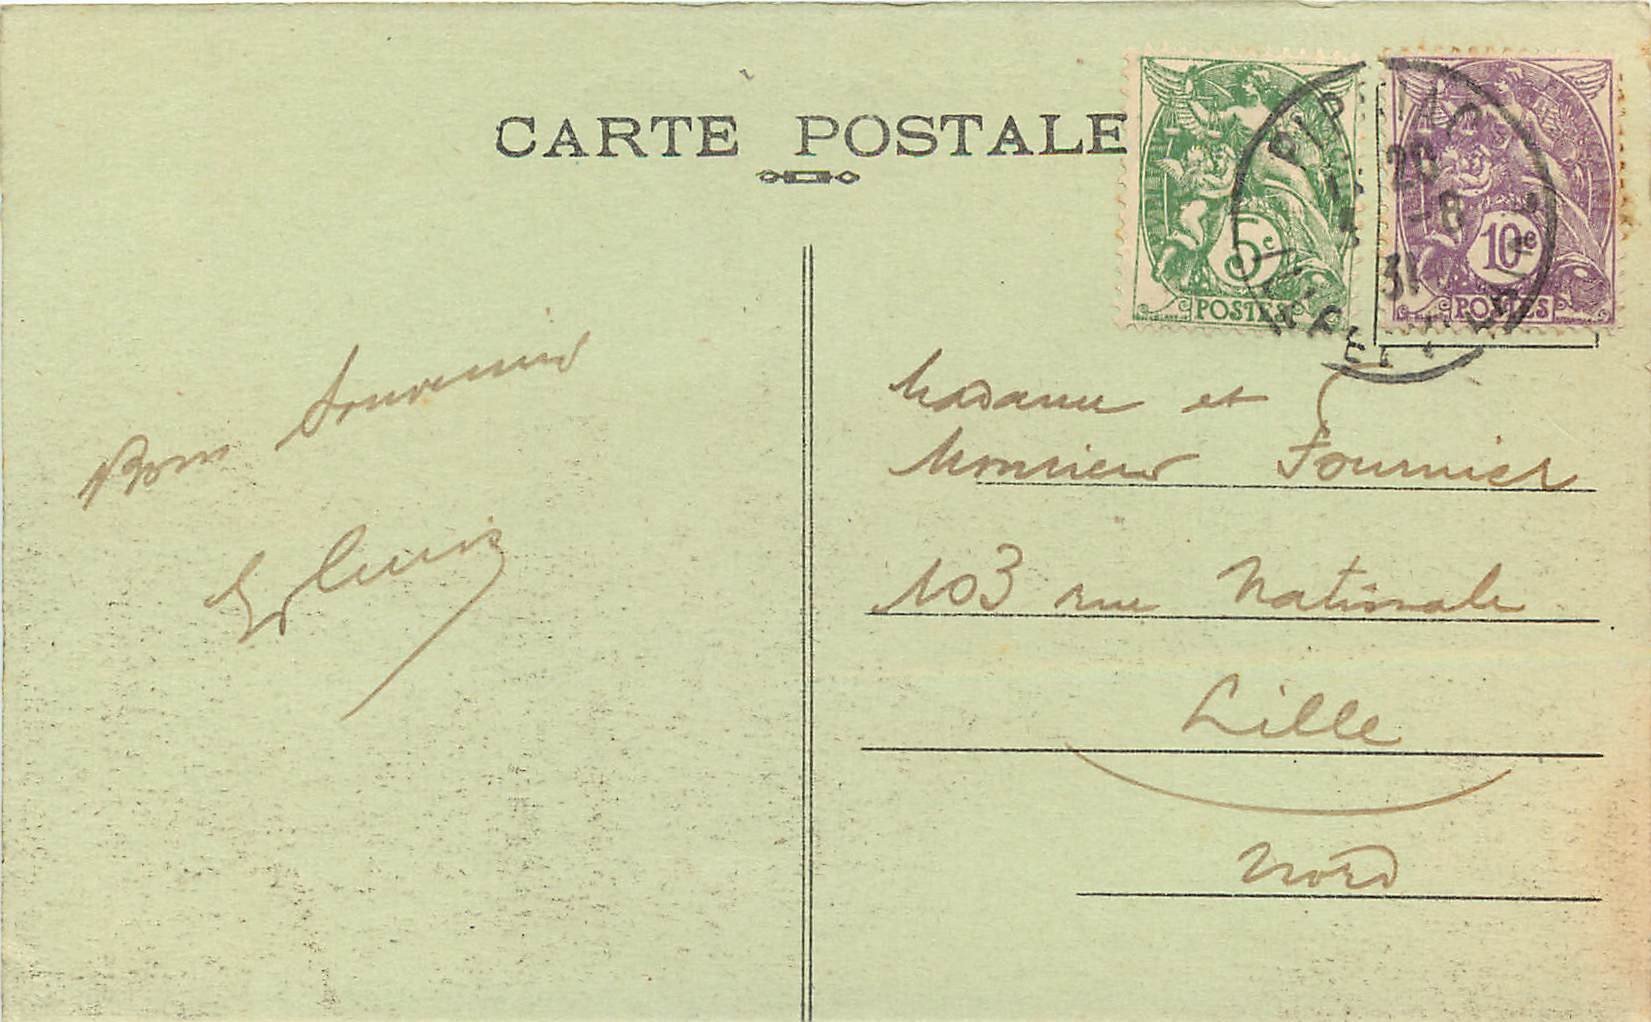 CARTE POSTALE
5c
POSTES
10c
POSTES
PIPRIAC
20
-8
31
Bon Souvenir
Madame et
Monsieur Fournier
103 rue Nationale
Lille
Nord